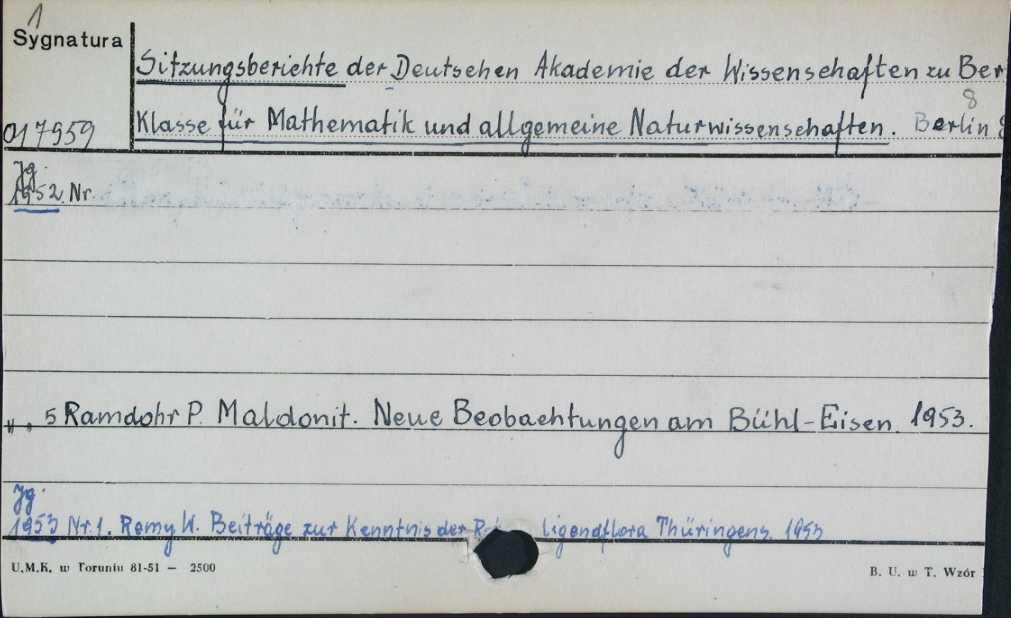 1
Sygnatura
Sitzungsberichte der Deutschen Akademie der Wissenschaften zu Ber
8
017959 Klasse für Mathematik und allgemeine Naturwissenschaften. Berlin
Jg.
1952 Nr.
" " 5 Ramdohr P. Maldonit. Neue Beobachtungen am Bühl-Eisen. 1953.
Jg.
1953 Nr.1. Remy W. Beiträge zur Kenntnis der ligendflora Thüringens. 1953
U.M.K. w Toruniu 81-51 — 2500
B. U. w T. Wzór